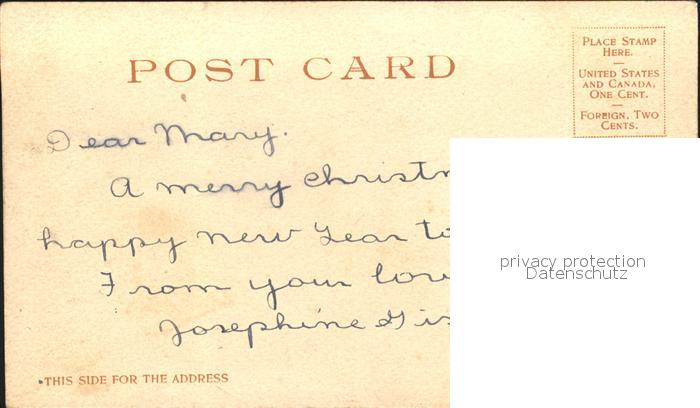 POST CARD
PLACE STAMP
HERE.
—
UNITED STATES
AND CANADA,
ONE CENT.
—
FOREIGN, TWO
CENTS.
Dear Mary.
A merry
happy new Year
From your
Josephine
THIS SIDE FOR THE ADDRESS
privacy protection
Datenschutz